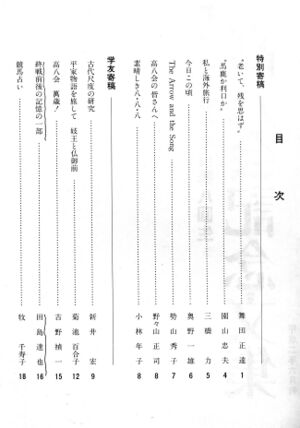 目次
特別寄稿
"老いて、残を思はず" 舞田正達 1
"馬鹿か利口か" 園山忠夫 4
私と海外旅行 三橋力 5
今日この頃 奥野一雄 6
The Arrow and the Song 勢山秀子 7
高八会の皆さんへ 野々山正司 8
素晴しき八・八・八 小林年子 8
学友寄稿
古代尺度の研究 新井宏 9
平家物語を旅して 妓王と仏御前 菊池百合子 12
高八会 萬歳! 吉野槙一 15
終戦前後の記憶の一部 田島達也 16
競馬占い 牧千寿子 18